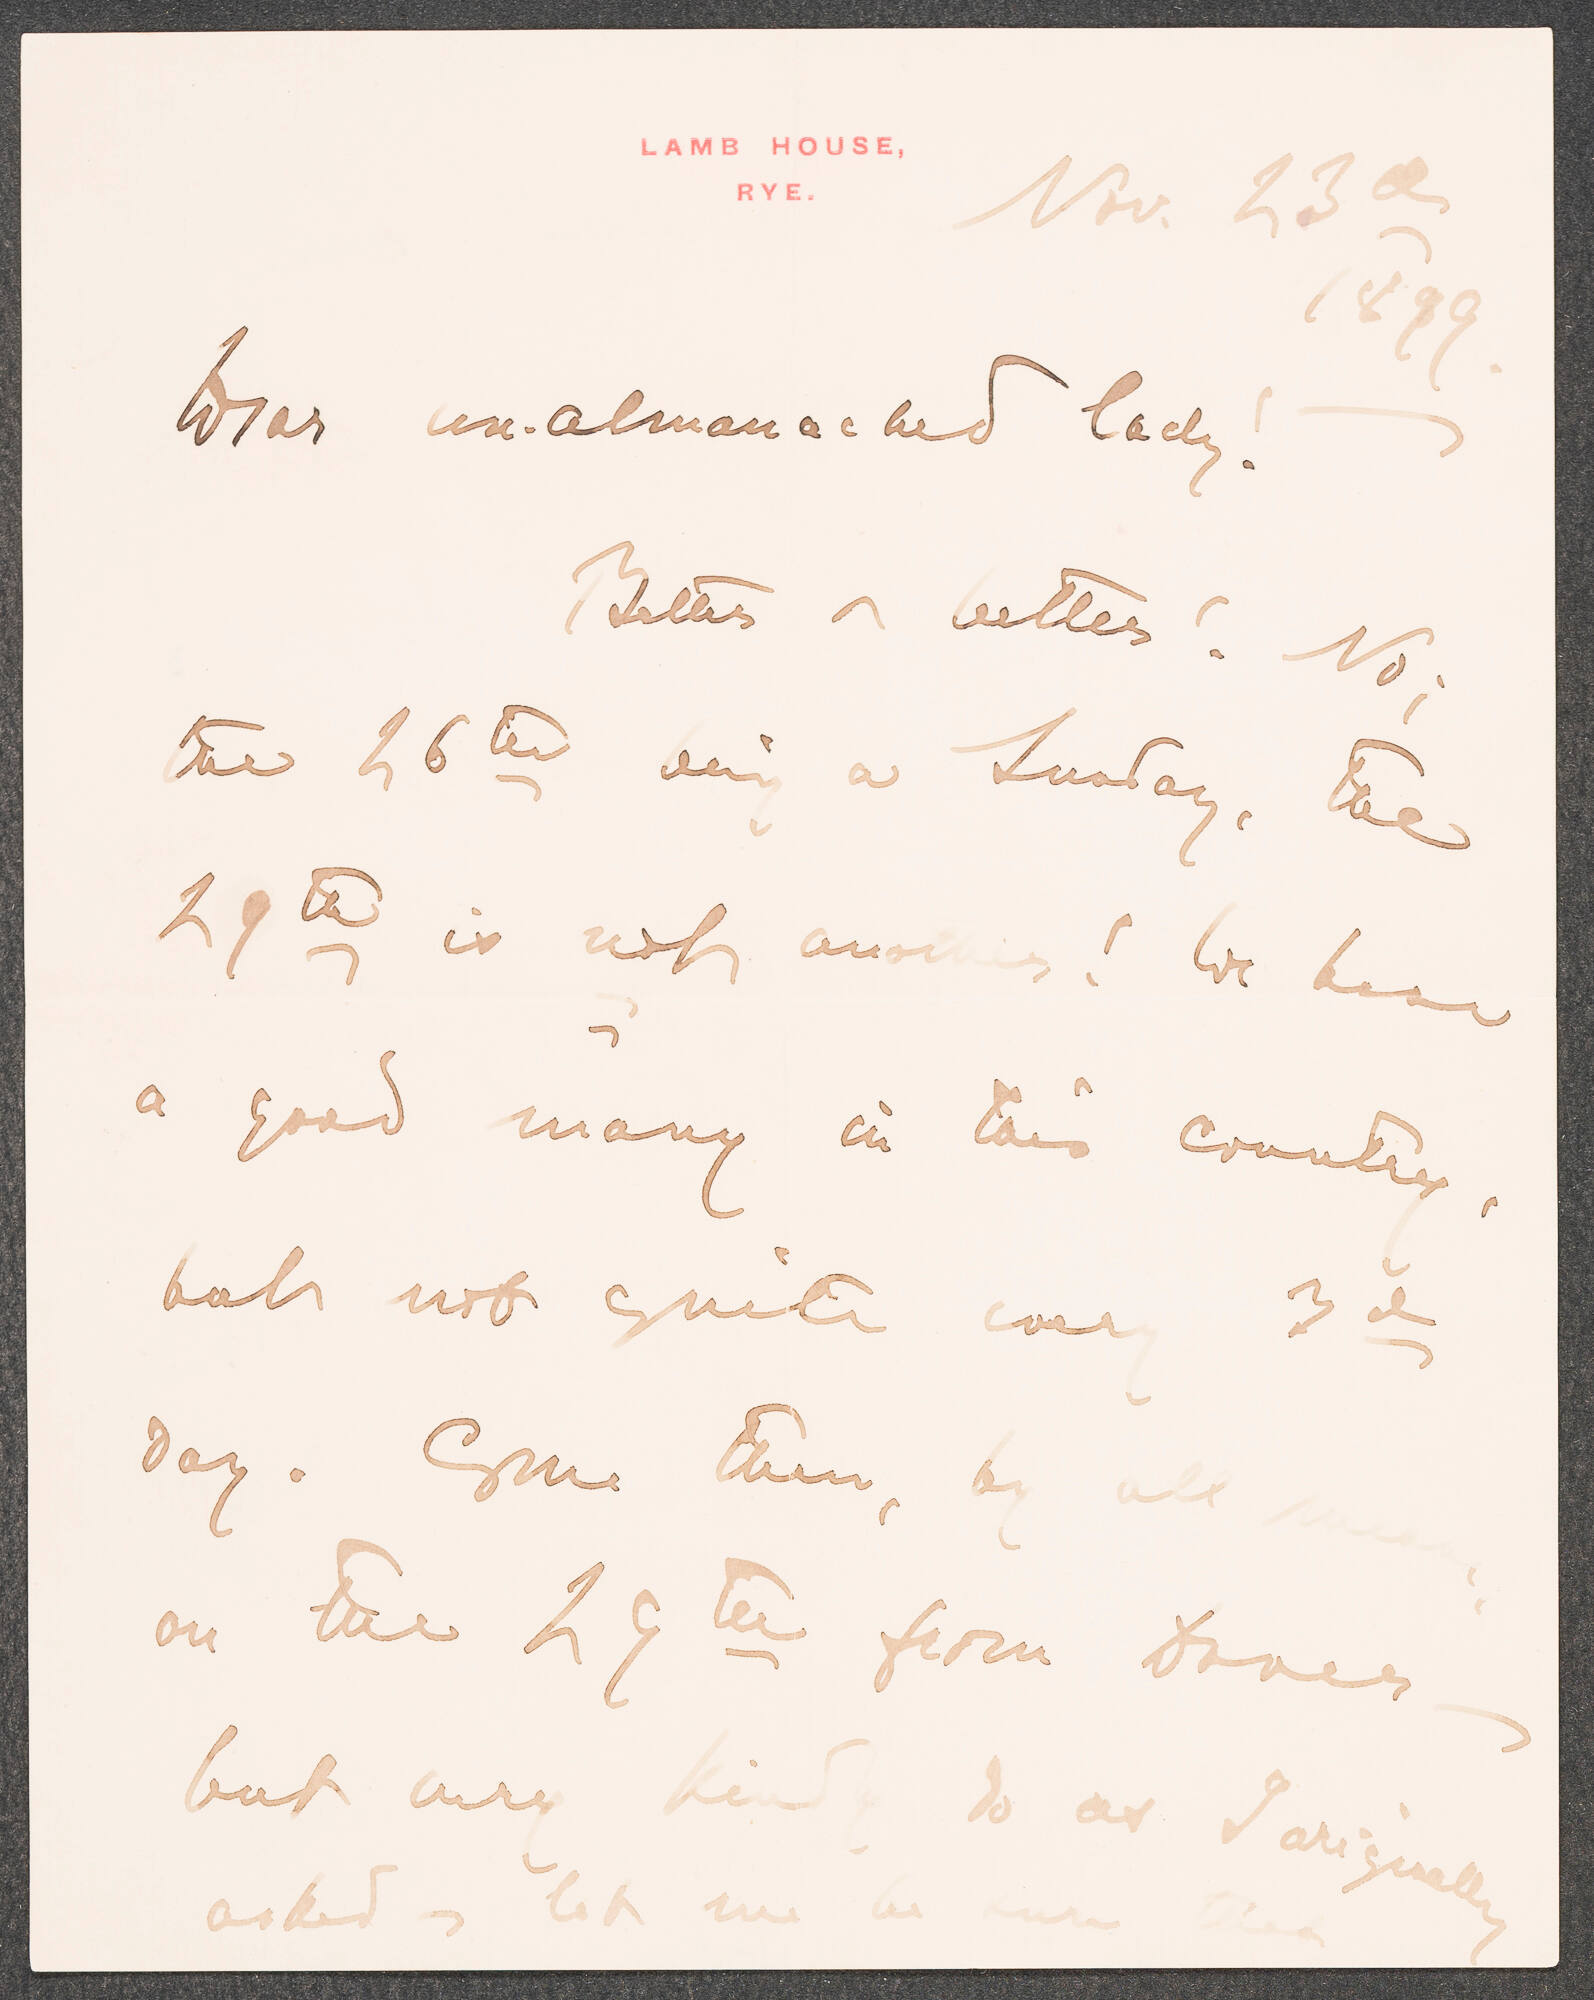 LAMB HOUSE,
RYE.
Nov. 23d
1899.
Dear un-almanached lady! —
Better & better! No;
the 26th being a Sunday, the
29th is not another! We have
a good many in this country,
but not quite every 3d
day. Come then, by all means,
on the 29th from Dover —
but very kindly do as I originally
asked & let me be sure that